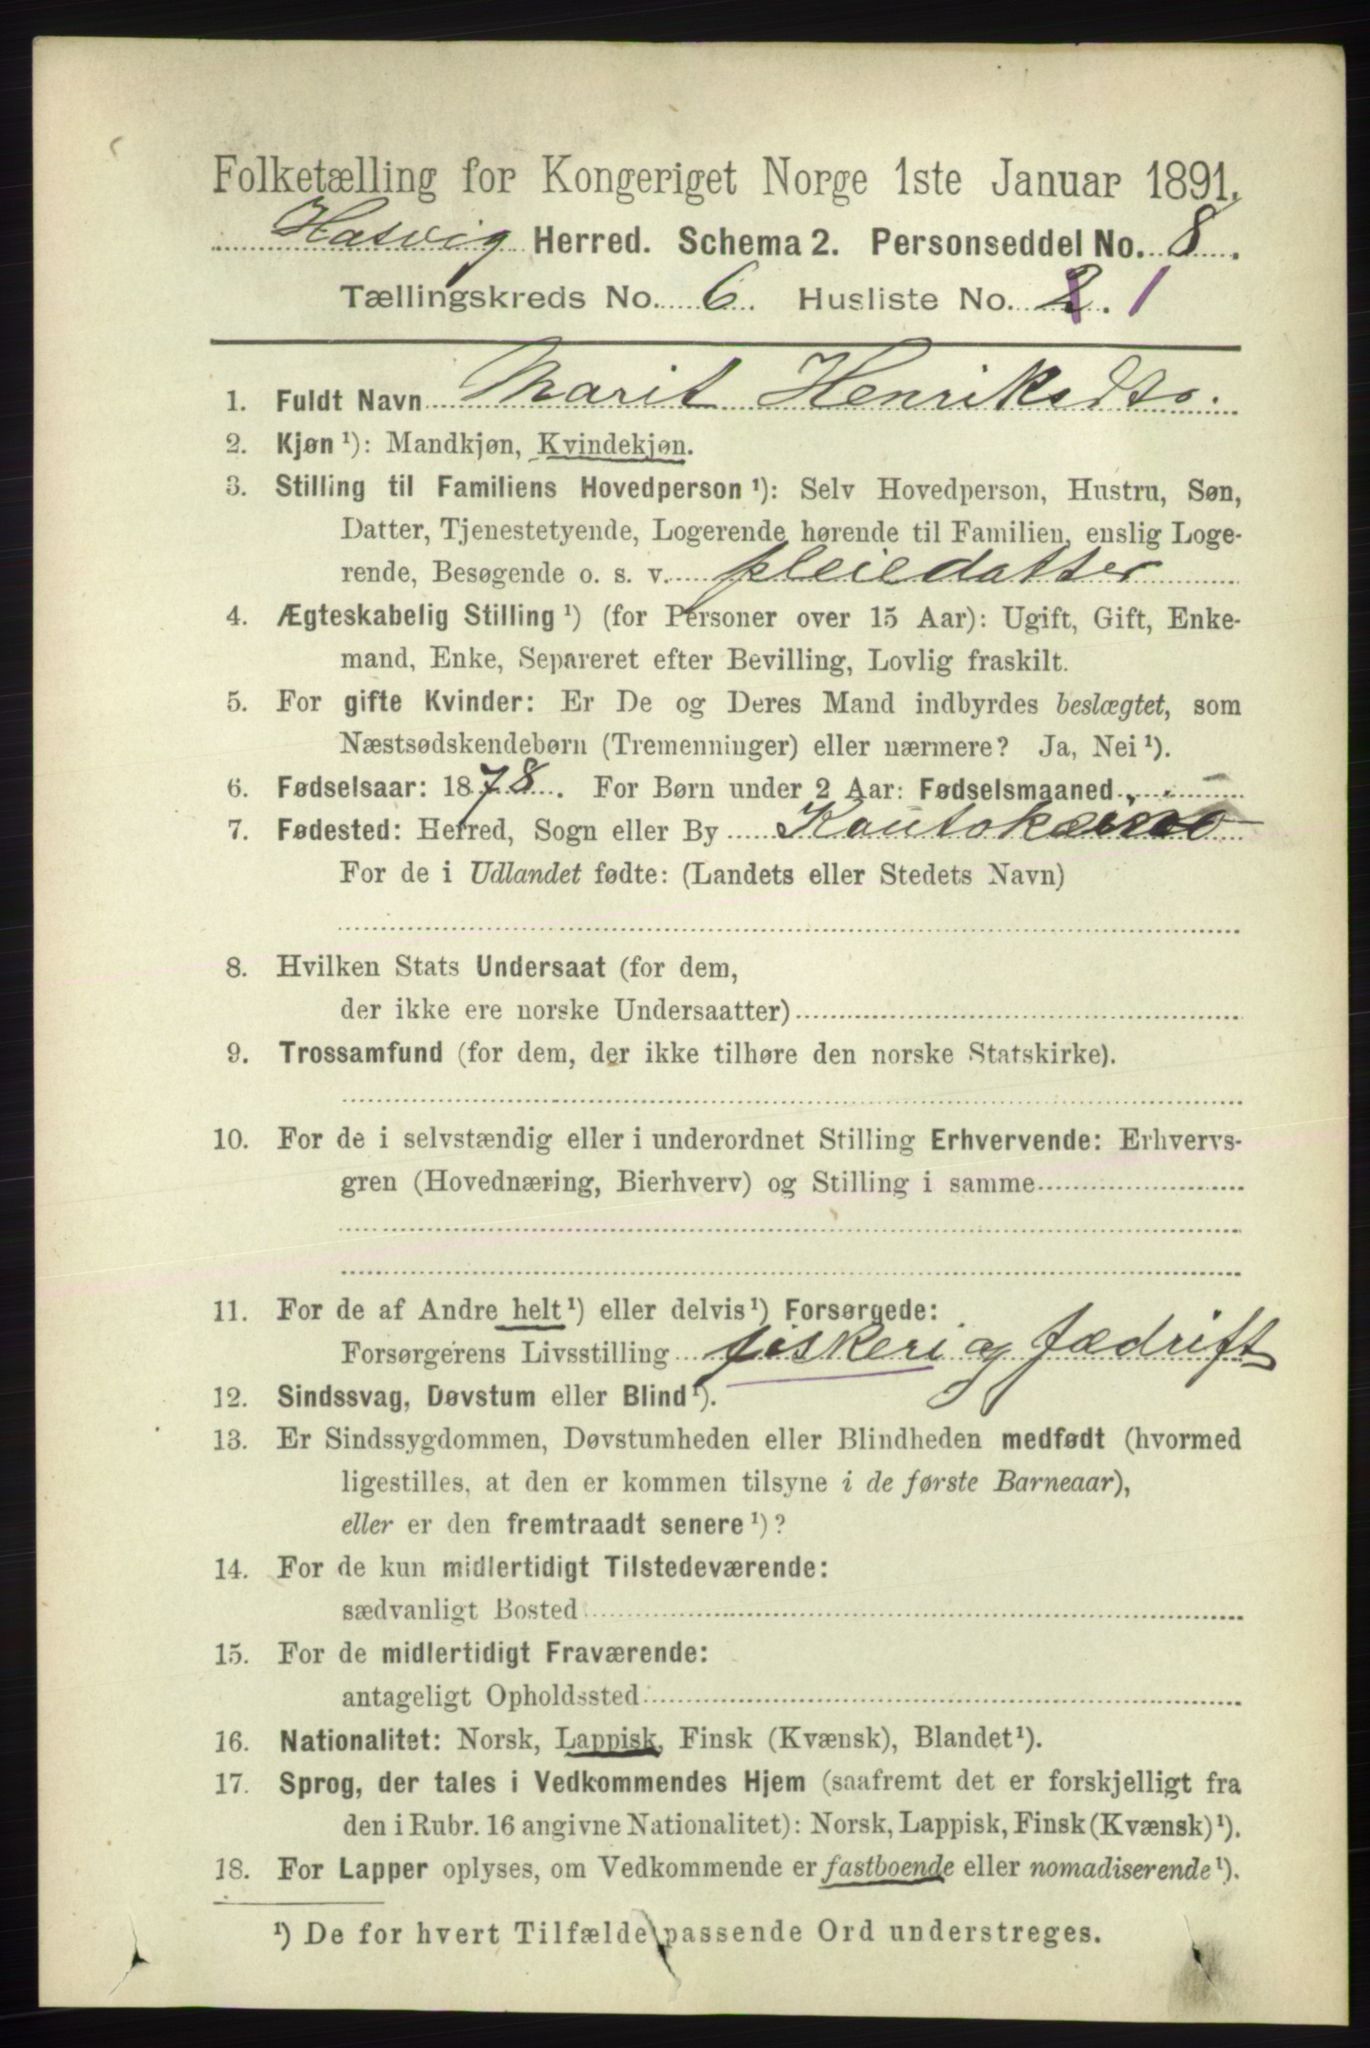 Folketælling for Kongeriget Norge 1ste Januar 1891.
Hasvig Herred. Schema 2. Personseddel No. 8.
Tællingskreds No. 6. Husliste No. 2. 1
1. Fuldt Navn Marit Henriksdtr.
2. Kjøn ¹): Mandkjøn, Kvindekjøn.
3. Stilling til Familiens Hovedperson ¹): Selv Hovedperson, Hustru, Søn,
Datter, Tjenestetyende, Logerende hørende til Familien, enslig Loge-
rende, Besøgende o. s. v. pleiedatter
4. Ægteskabelig Stilling ¹) (for Personer over 15 Aar): Ugift, Gift, Enke-
mand, Enke, Separeret efter Bevilling, Lovlig fraskilt.
5. For gifte Kvinder: Er De og Deres Mand indbyrdes beslægtet, som
Næstsødskendebørn (Tremenninger) eller nærmere? Ja, Nei ¹).
6. Fødselsaar: 1878. For Børn under 2 Aar: Fødselsmaaned
7. Fødested: Herred, Sogn eller By Koutokæino
For de i Udlandet fødte: (Landets eller Stedets Navn)
8. Hvilken Stats Undersaat (for dem,
der ikke ere norske Undersaatter)
9. Trossamfund (for dem, der ikke tilhøre den norske Statskirke).
10. For de i selvstændig eller i underordnet Stilling Erhvervende: Erhvervs-
gren (Hovednæring, Bierhverv) og Stilling i samme
11. For de af Andre helt ¹) eller delvis ¹) Forsørgede:
Forsørgerens Livsstilling fiskeri og fædrift
12. Sindssvag, Døvstum eller Blind ¹).
13. Er Sindssygdommen, Døvstumheden eller Blindheden medfødt (hvormed
ligestilles, at den er kommen tilsyne i de første Barneaar),
eller er den fremtraadt senere ¹)?
14. For de kun midlertidigt Tilstedeværende:
sædvanligt Bosted
15. For de midlertidigt Fraværende:
antageligt Opholdssted
16. Nationalitet: Norsk, Lappisk, Finsk (Kvænsk), Blandet ¹).
17. Sprog, der tales i Vedkommendes Hjem (saafremt det er forskjelligt fra
den i Rubr. 16 angivne Nationalitet): Norsk, Lappisk, Finsk (Kvænsk) ¹).
18. For Lapper oplyses, om Vedkommende er fastboende eller nomadiserende ¹).
¹) De for hvert Tilfælde passende Ord understreges.